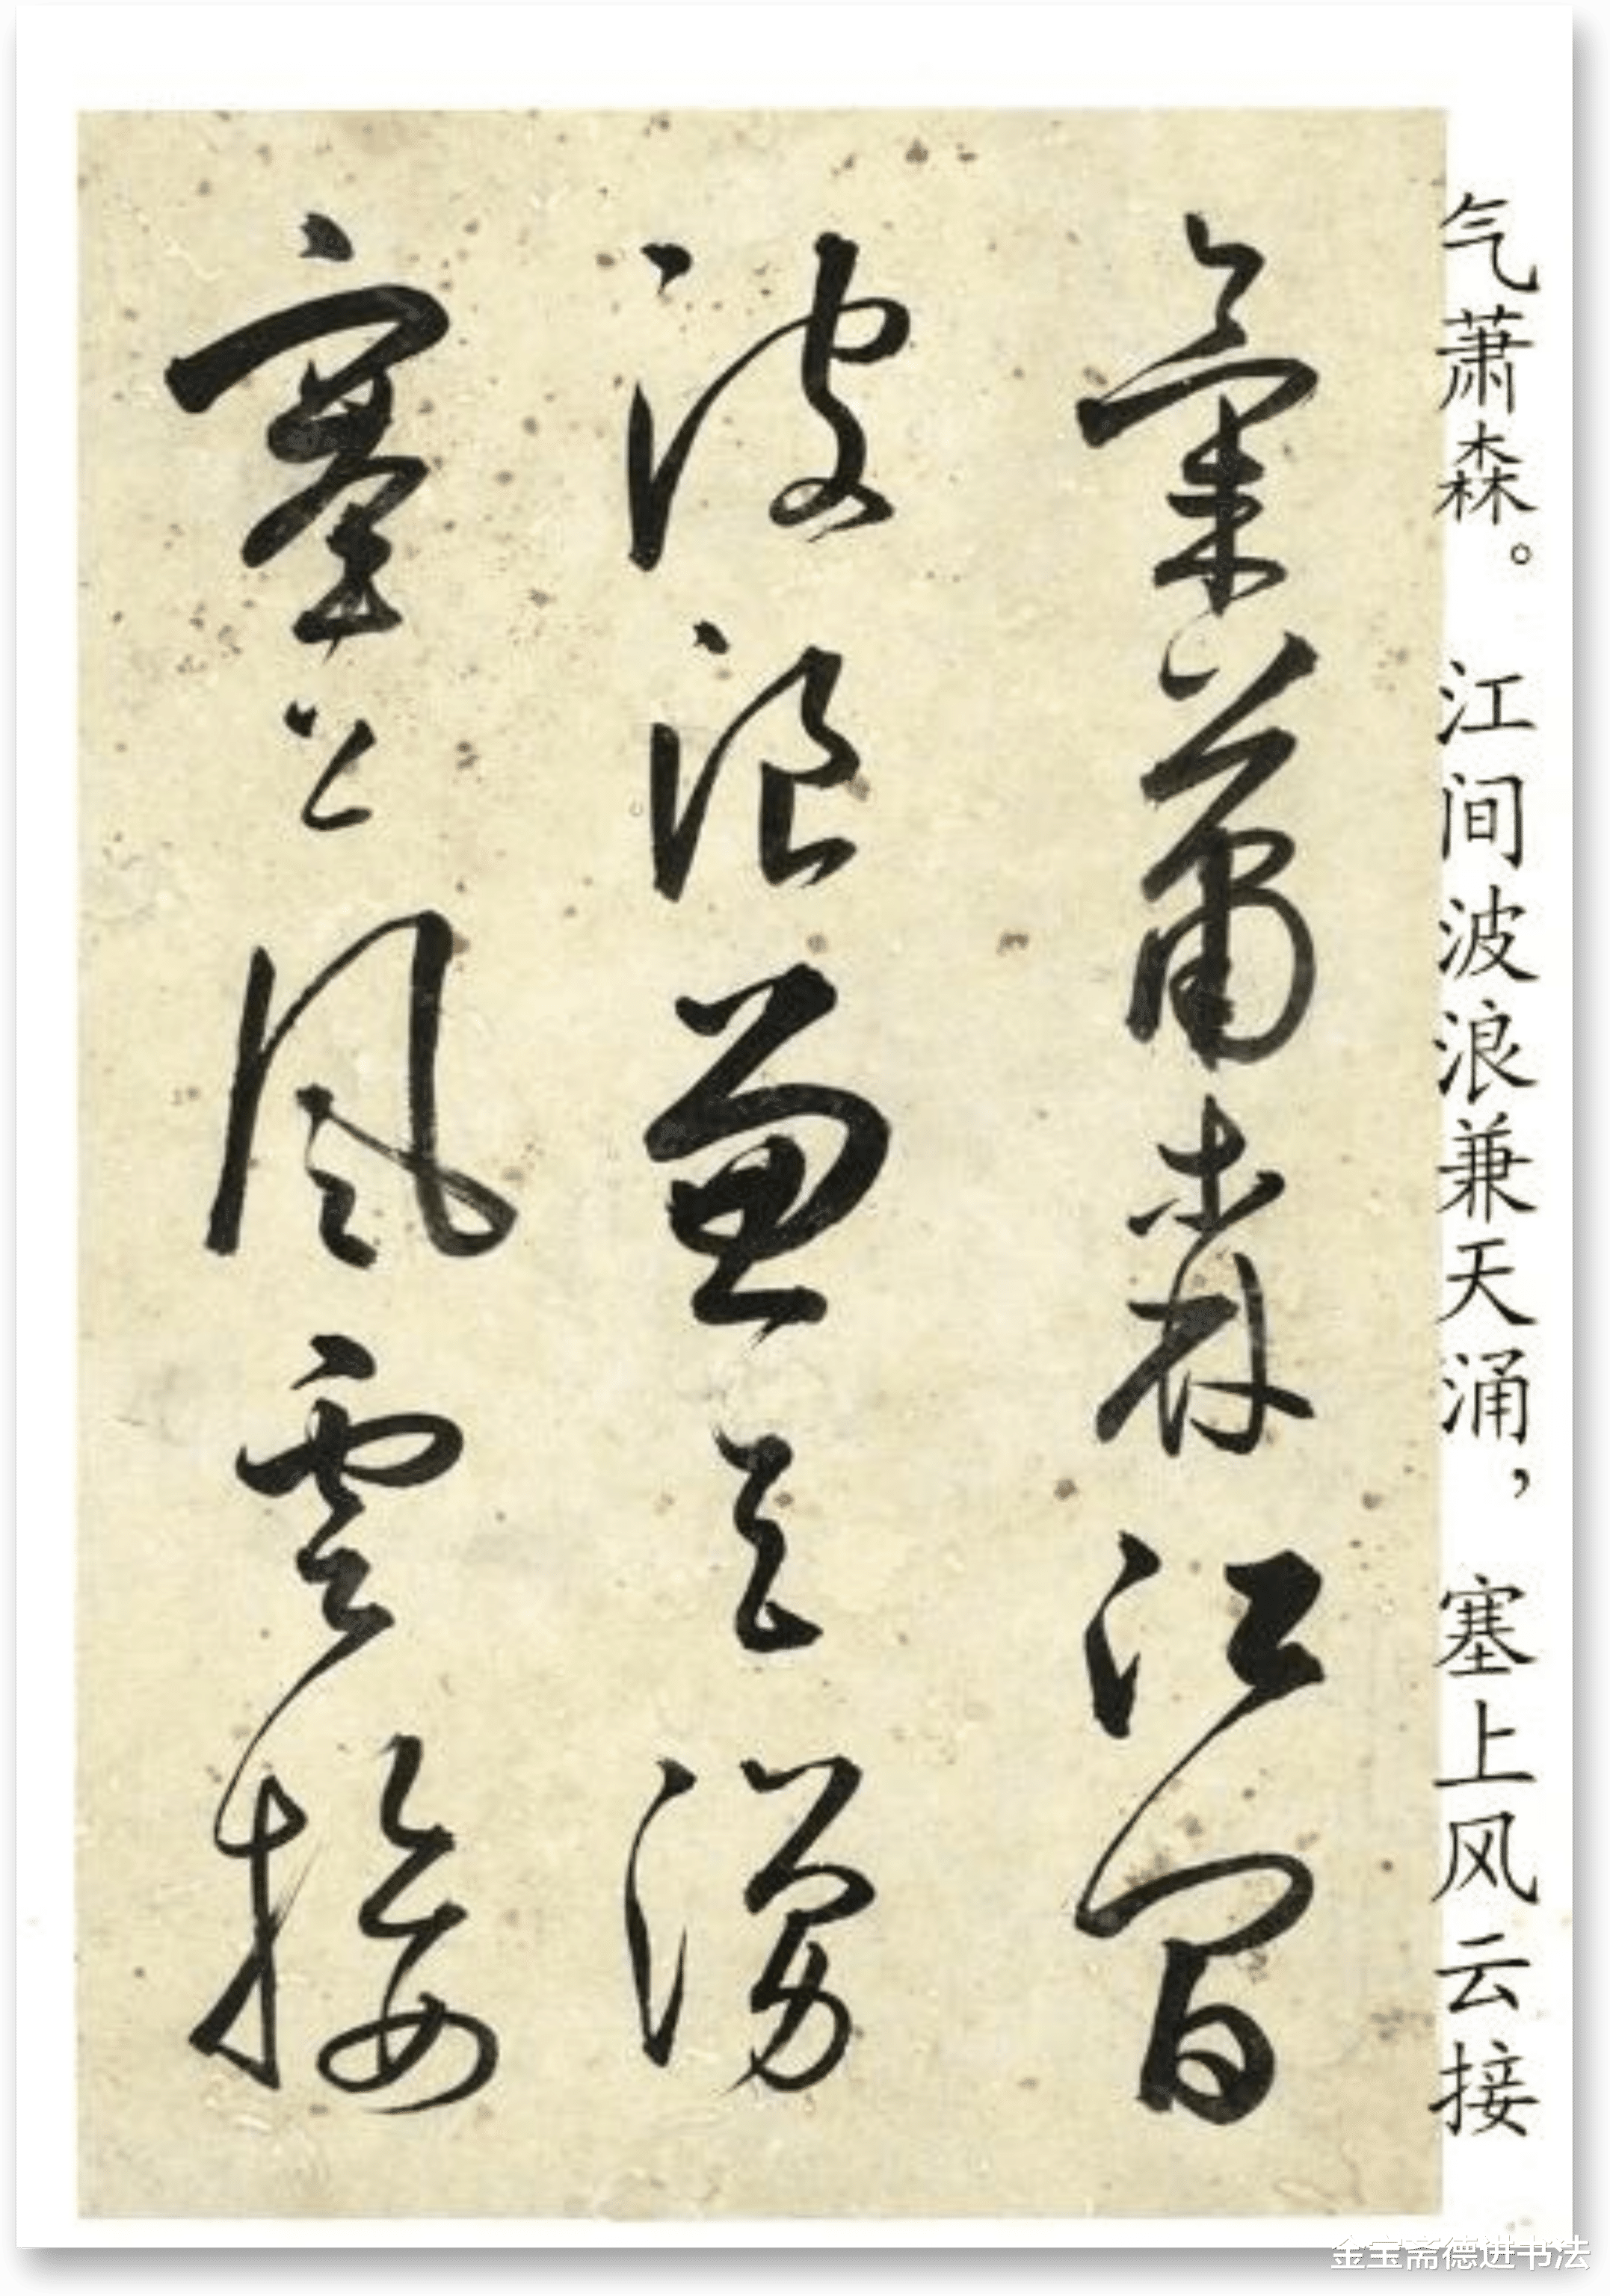 气萧森。江间波浪兼天涌，塞上风云接
氣蕭森江間
波浪兼天湧
塞上風雲接
金宝斋德进书法